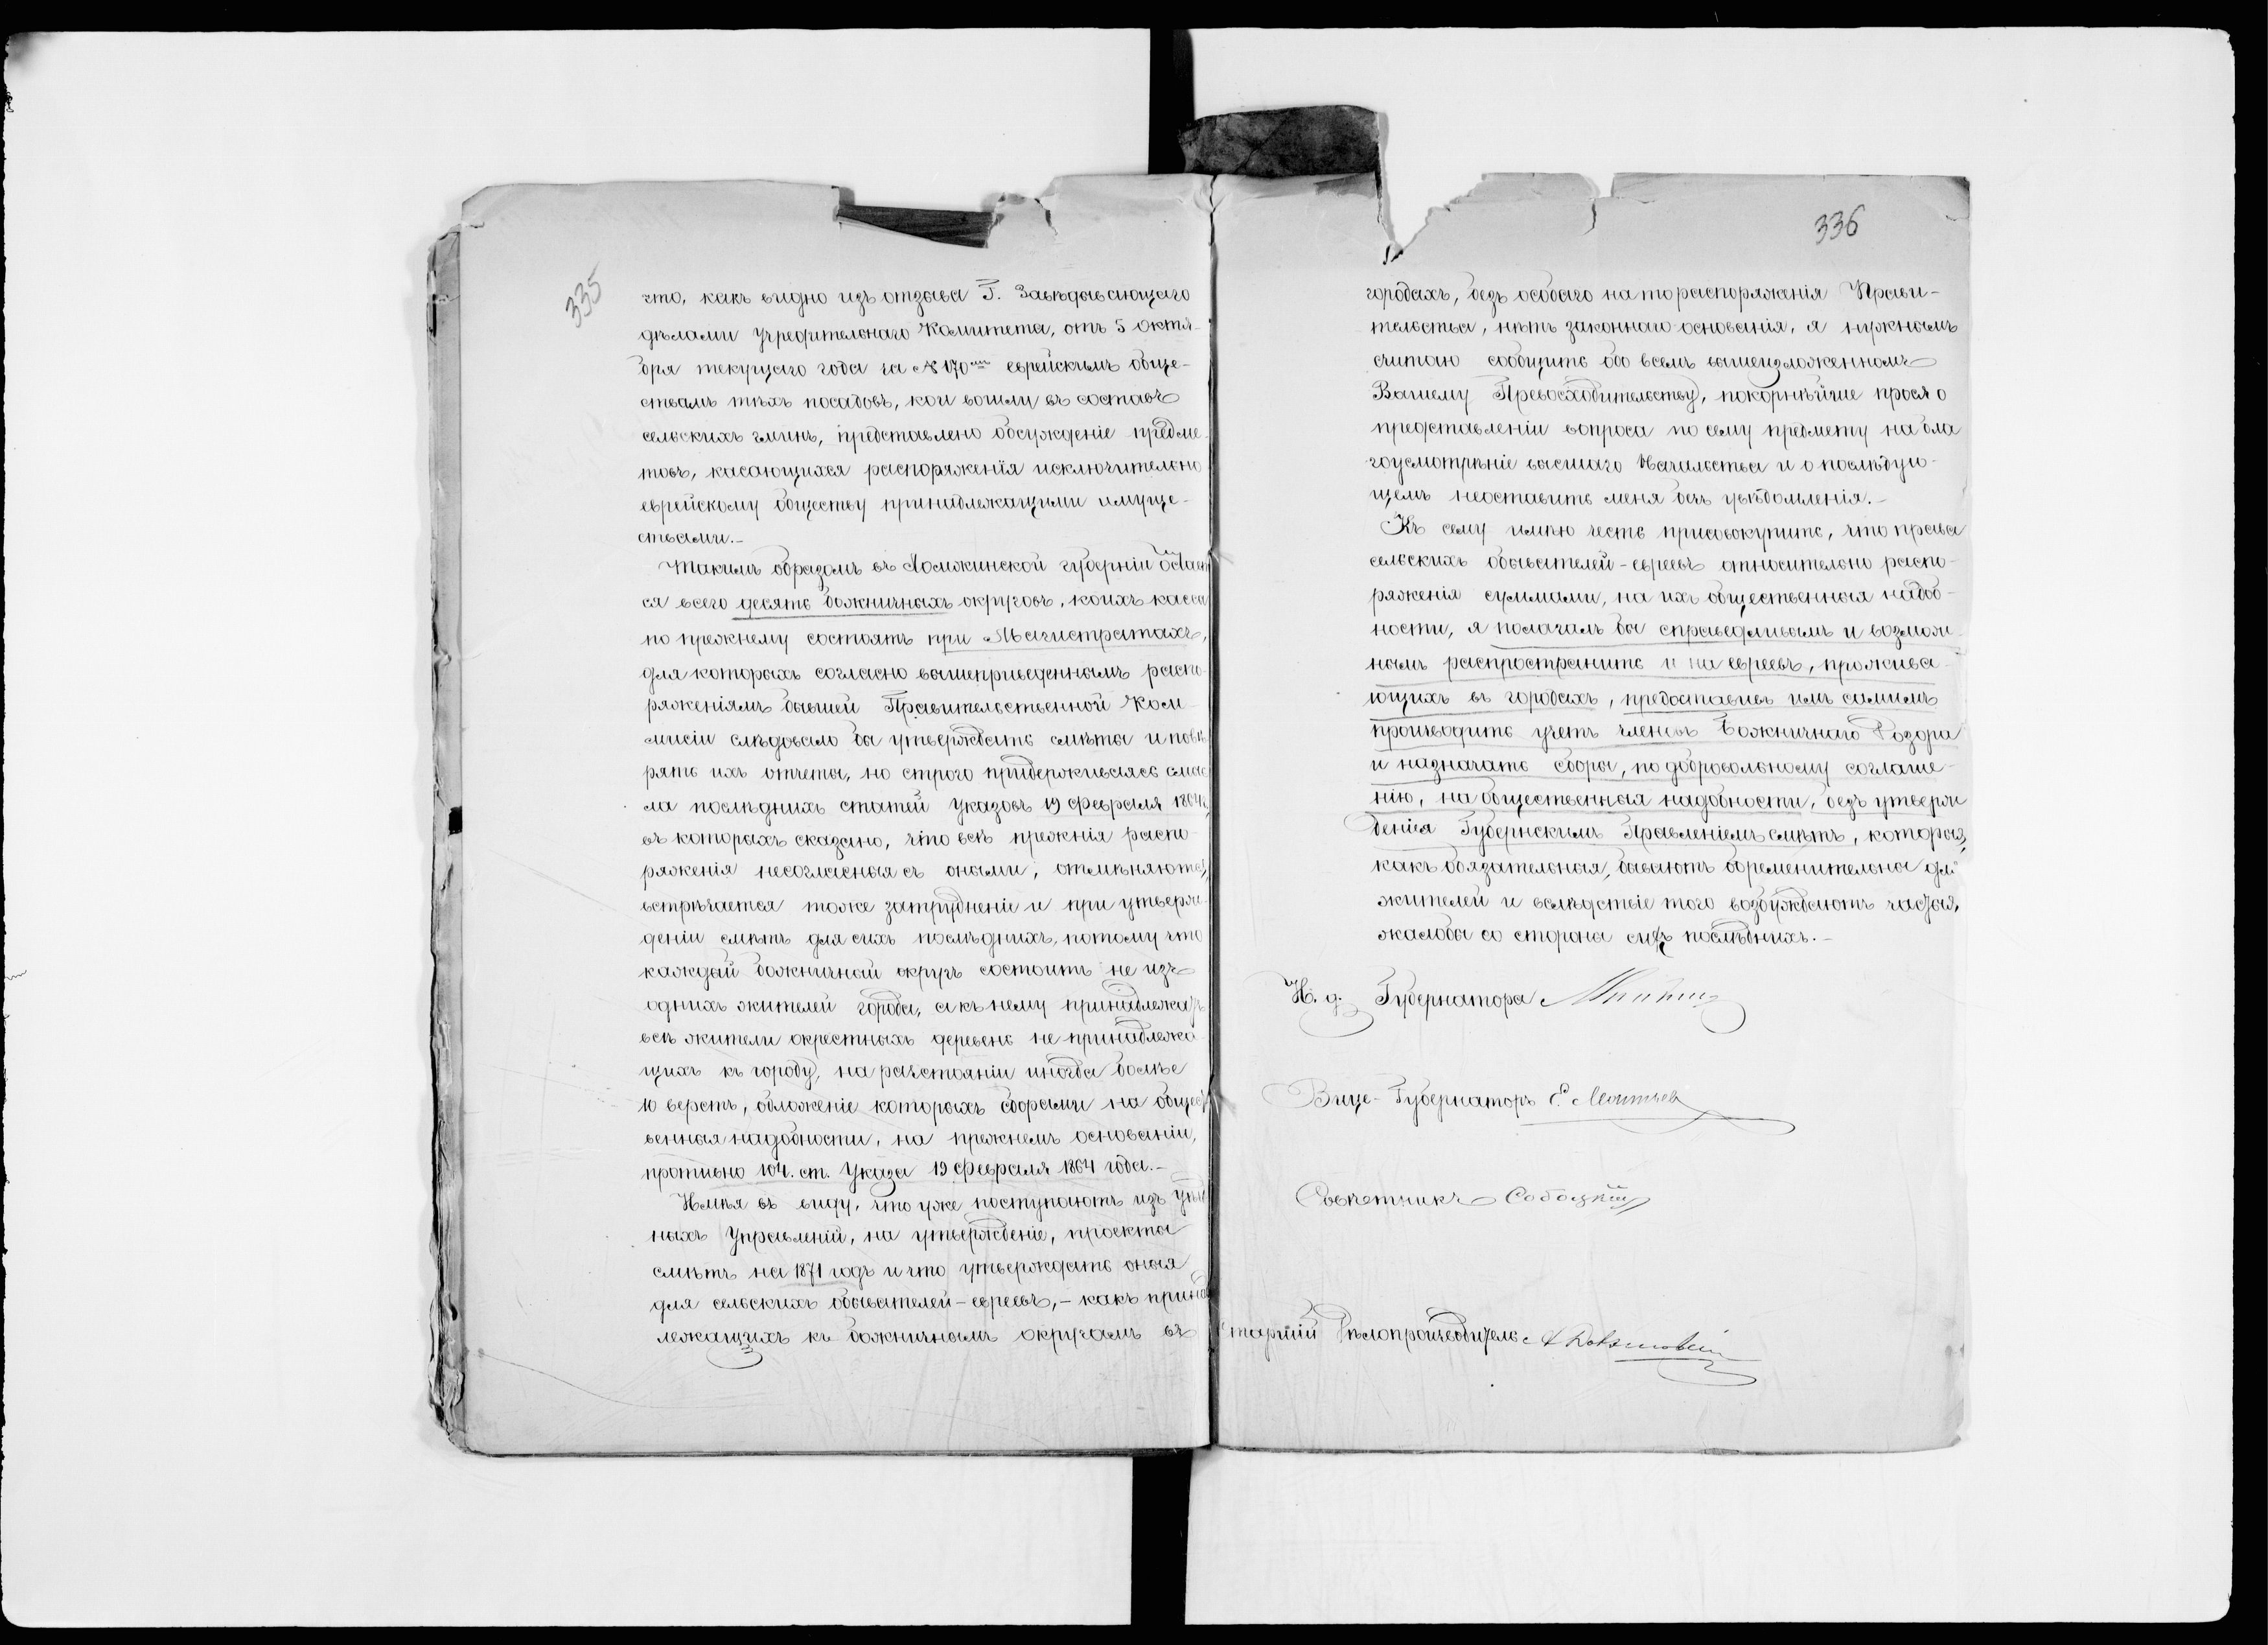 335
что, какъ видно изъ отзыва Г. Завѣдывающаго
дѣлами Учредительнаго Комитета, отъ 5 Октя-
бря текущаго года за №170 еврейскимъ обще-
ствамъ тѣхъ посадовъ, кои вошли въ составъ
сельскихъ гминъ, предоставлено обсужденіе предме-
товъ, касающихся распоряженія исключительно
еврейскому обществу принадлежащими имуще-
ствами.-
Такимъ образомъ въ Ломжинской губерніи остает
ся всего десять божничныхъ округовъ, коихъ кассы
по прежнему состоятъ при Магистратахъ,
для которыхъ согласно вышеприведеннымъ распо-
ряженіямъ бывшей Правительственной Ком-
мисіи слѣдовало бы утверждать смѣты и повѣ
рять ихъ отчеты, но строго придерживаясь смыс
ла послѣднихъ статей Указовъ 19 Февраля 1864 г,
въ которыхъ сказано, что всѣ прежнія распо-
ряженія несогласныя съ оными, отмѣняются,
встрѣчается тоже затрудненіе и при утверж-
деніи смѣтъ для сихъ послѣднихъ, потому что
каждый божничный округъ состоитъ не изъ
однихъ жителей города, а къ нему принадлежатъ
всѣ жители окрестныхъ деревень не принадлежа
щихъ къ городу, на разстояніи иногда болѣе
10 верстъ, обложеніе которыхъ сборами на общест
венныя надобности, на прежнемъ основаніи,
противно 104. ст. Указа 19 Февраля 1864 года.-
Имѣя въ виду, что уже поступаютъ изъ Уѣзд
ныхъ Управленій, на утвержденіе, проекты
смѣтъ на 1871 годъ и что утверждать оныя
для сельскихъ обывателей-евреевъ,- какъ принад
лежащихъ къ божничнымъ округамъ въ
336
городахъ, безъ особаго на то распоряженія Прави-
тельства, нѣтъ законнаго основанія, я нужнымъ
считаю сообщить обо всемъ вышеизложенномъ
Вашему Превосходительству, покорнѣйше прося о
представленіи вопроса по сему предмету на бла
гоусмотрѣніе высшаго Начальства и о послѣдую-
щемъ неоставить меня безъ увѣдомленія.-
Къ сему имѣю честь присовокупить, что права
сельскихъ обывателей-евреевъ относительно распо-
ряженія суммами, на ихъ общественныя надоб-
ности, я полагалъ бы справедливымъ и возмож-
нымъ распространить и на евреевъ, прожива-
ющихъ въ городахъ, предоставивъ имъ самимъ
производить учетъ членовъ Божничнаго Дозора
и назначать сборы, по добровольному соглаше-
нію, на общественныя надобности, безъ утверж
денія Губернскимъ Правленіемъ смѣтъ, которыя,
какъ обязательныя, бываютъ обременительны для
жителей и вслѣдствіе того возбуждаютъ частыя
жалобы со стороны сихъ послѣднихъ.-
И. д. Губернатора
Вице-Губернаторъ Е. Леонтьев
Совѣтникъ Собоцкій
Старшій Дѣлопроизводитель